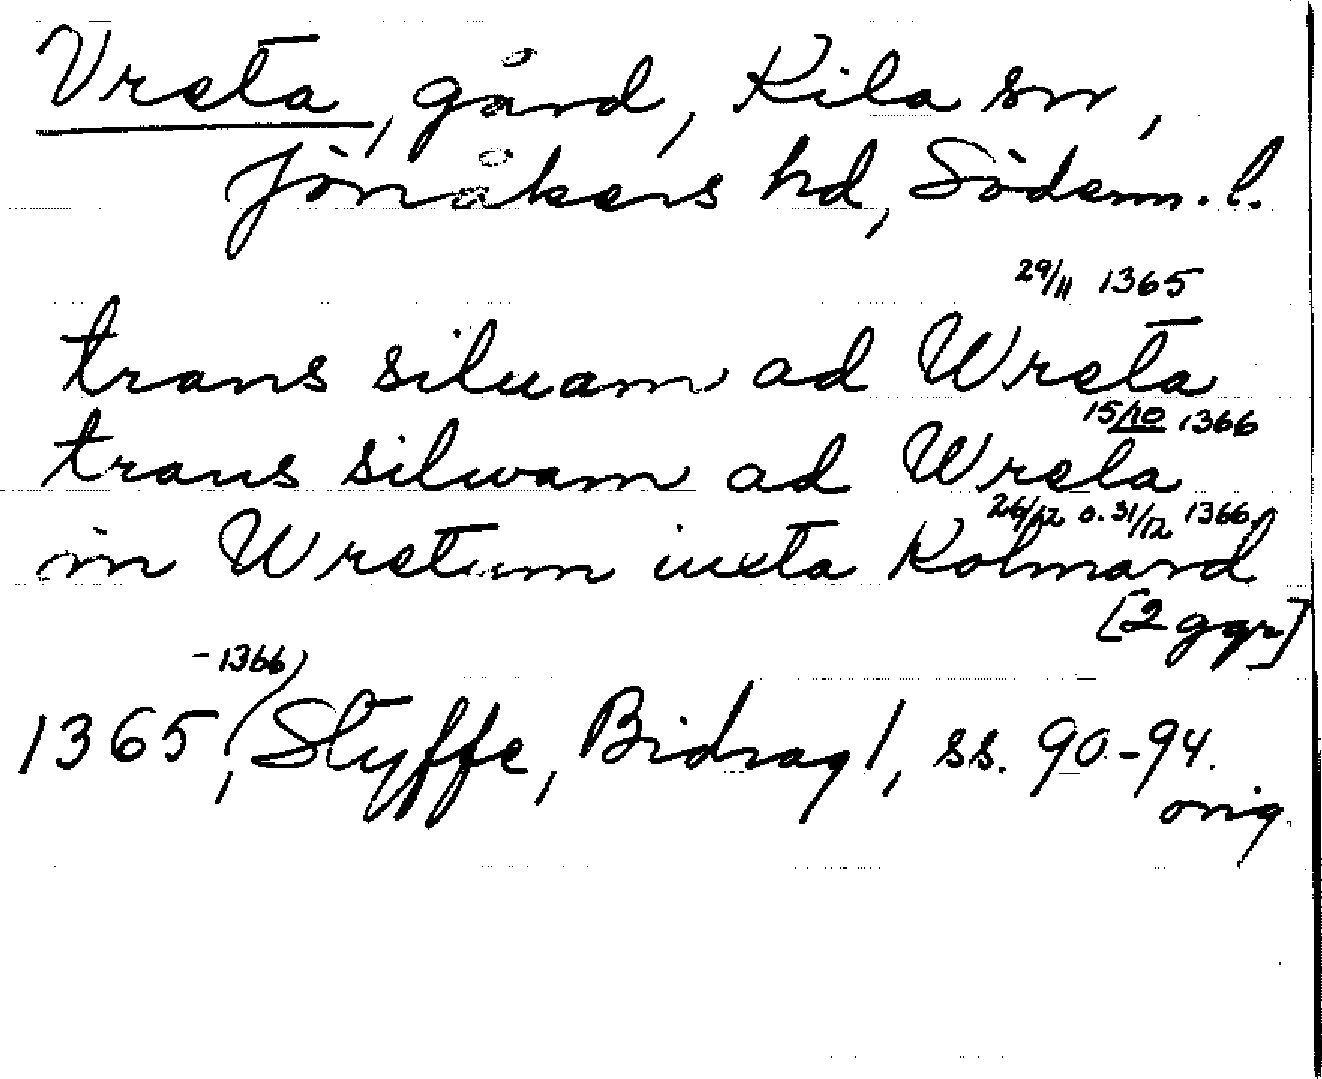 Vreta, gård, Kila sn,
Jönåkers hd, Söderm. l.
29/11 1365
trans siluam ad Wreta
15/10 1366
trans silwam ad Wreta
26/12 o. 31/12 1366
in Wretum iuxta Kolmard
[2 ggr]
-1366
1365, Styffe, Bidrag 1, ss. 90-94.
orig.